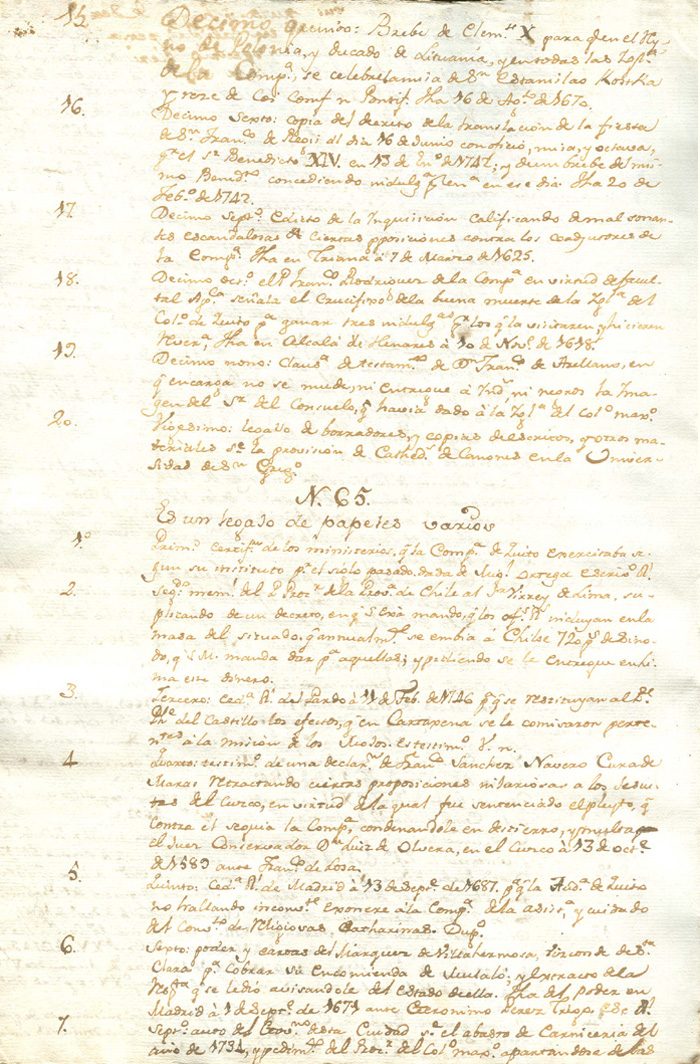 15. Decimo quinto: Brebe de Clem.te X para q en el Rey
no de Polonia, y ducado de Lituania, y en todas las Igl.s
de la Comp.a se celebre la misa de S.n Estanislao Kostka
y reze de Con. Conf. n Pontif. Fha 16 de Ag.to de 1670.
16. Decimo Septo: copia del decreto de la translacion de la fiesta
de S.n Fran.co de Regis al dia 16 de Junio con oficio, misa, y octava,
p.r el S.r Benedicto XIV. en 13 de En.o de 1742; y de un brebe del mis
mo Bened.to concediendo indulg.a plen.a en ese dia. Fha 20 de
Feb.o de 1742.
17. Decimo Sept.o Edicto de la Inquisicion calificando de mal sonan
tes escandalosas &c ciertas pposiciones contra los coadjutores de
la Comp.a Fha en Triana à 7 de Marzo de 1625.
18. Decimo oct.o el P. Fran.co Rodriguez de la Comp.a en virtud de facul
tad Ap.ca señala el Crucifixo de la buena muerte de la Igl.a del
Col.o de Quito p.a ganar tres indulg.as p.a los q la visitaren, y hicieren
Fha en Alcalà de Henares à 10 de Nov.e de 1618.
19. Decimo nono: Claus.a de testam.to de D.n Fran.co de Arellano, en
q encarga no se mude, ni entregue à Ind.s ni negros la Ima
gen del S.r del Consuelo, q havia dado à la Igl.a del Col.o max.o
20. Vigesimo: legajo de borradores, y copias de escritos, y otros ma
teriales s.re la provision de Cathed.s de Canones en la Univer
sidad de S.n Greg.o
N. 65.
Es un legajo de papeles varios
1.o Prim.o Certif.on de los ministerios, q la Comp.a de Quito exercitaba se
gun su instituto p.r el siglo pasado. dada de Mig.l Ortega Escrio R.l
2. Seg.do mem.l del P. Proc.r de la Prov.a de Chile al S.r Virrey de Lima, su
plicando de un decreto, en q S. Exà mandò, q los of.s R.s incluyan en la
masa del situado, q annualm.te se embia à Chile 720 p.s de Sino
do, q S.M. manda dar p.a aquellas; y pidiendo se le entregue en Li
ma este dinero.
3. Tercero: Ced.a R.l del Pardo à 11 de Feb. de 1746 p.a q se restituyan al P.
del Castillo los efectos, q en Cartaxena se le comisaron perte
n.tes à la mision de los Moxos. Es testim.o
4. Quarto: testim.o de una declar.on de Fran.co Sanchez Navero Cura de
Maras retractando ciertas proposiciones injuriosas a los Jesui
tas del Cuzco, en virtud de la qual fue sentenciado el pleyto, q
contra el seguia la Comp.a condenandole en destierro, y multa p.r
el Juez Conservador D.n Luiz de Olvera, en el Cuzco à 13 de Oct.e
de 1589 ante Fran.co de Losa.
5. Quinto: Ced.a R.l de Madrid à 13 de Sept.e de 1687. p.a q la Aud.a de Quito
no hallando inconv.te exonere à la Comp.a de la asist.a y cuidado
del Conv.to de Religiosas Catharinas. Dup.o
6. Septo: poder y cartas del Marquez de Villahermosa, Vizconde de S.ta
Clara p.a cobrar su Encomienda de Mulalò: y extracto de la
Resp.ta q se le diò avisandole del estado de ella. Fha del poder en
Madrid à 1 de Sept.e de 1671 ante Geronimo Perez
7. Sept.o auto del Gov.no de esta Ciudad s.re el abasto de Carniceria del
año de 1731, y pedim.to del Proc.r del Col.o max.o apartandose de